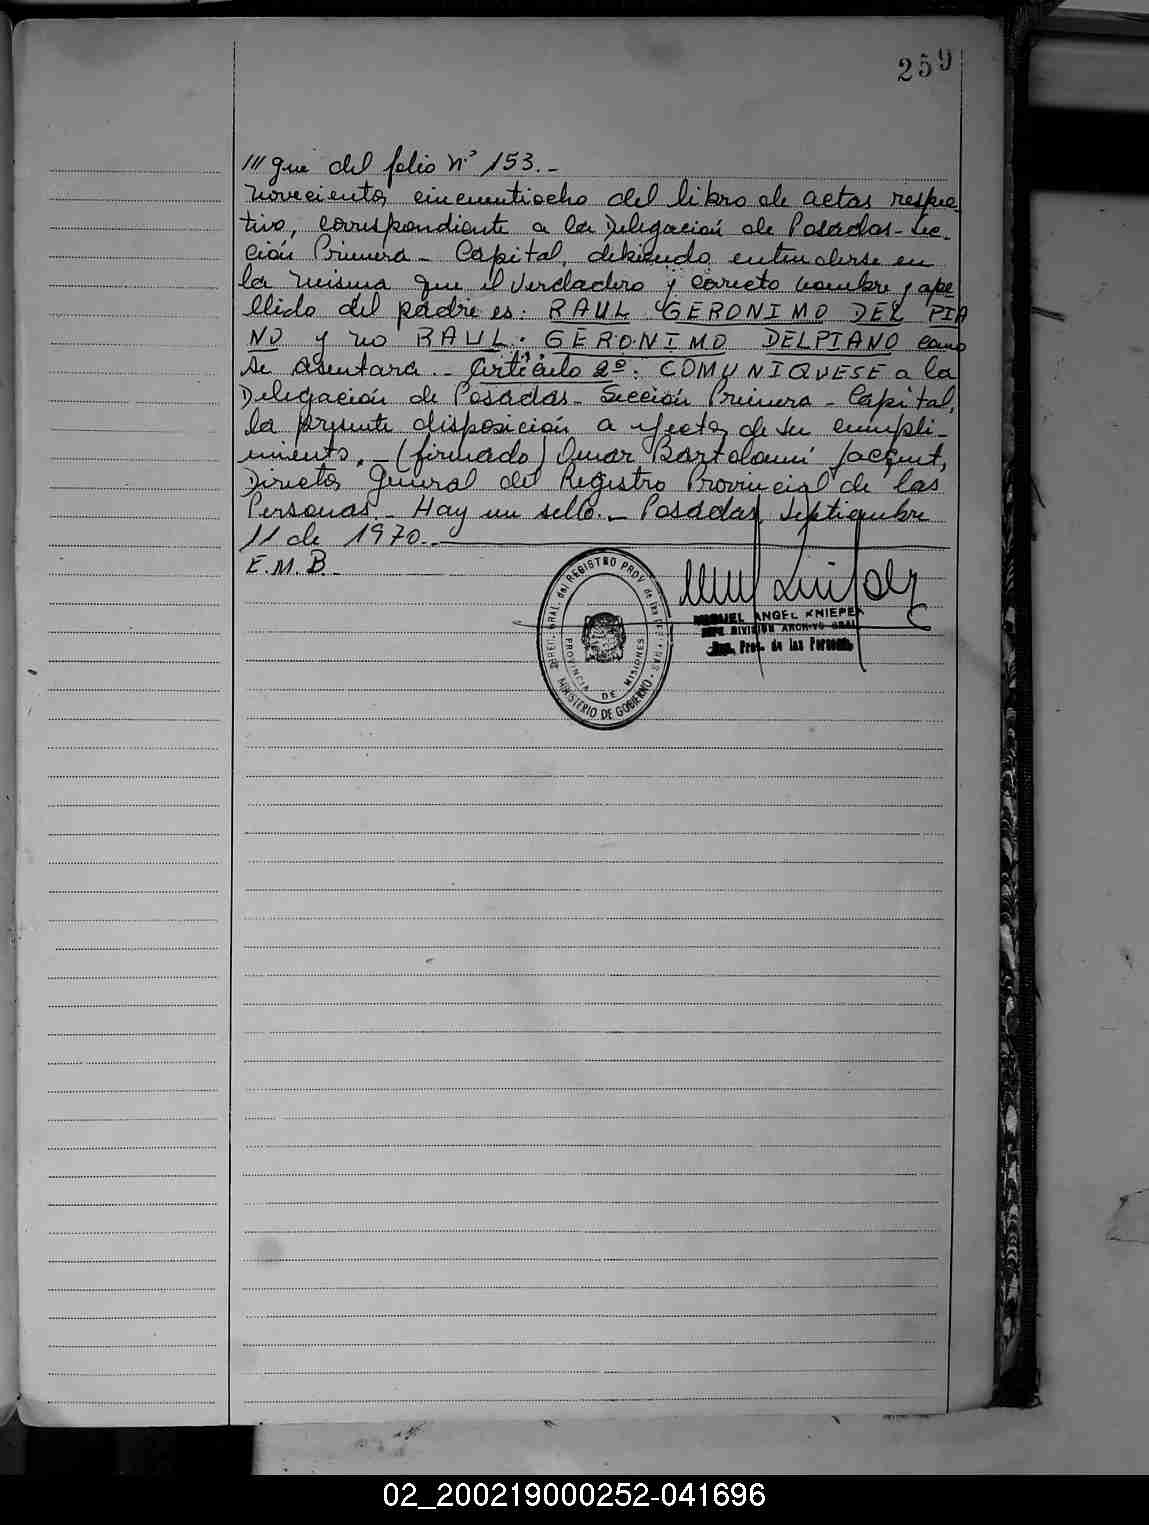 259
/// gue del folio Nº 153.-
novecientos cincuentiocho del libro de actas respec-
tivo, correspondiente a la Delegación de Posadas-Sec-
ción Primera - Capital, debiendo entenderse en
la misma que el verdadero y correcto nombre y ape-
llido del padre es: RAUL GERONIMO DEL PIA
NO y no RAUL GERONIMO DELPIANO como
se asentara.- Artículo 2º: COMUNIQUESE a la
Delegación de Posadas- Sección Primera - Capital,
la presente disposición a efectos de su cumpli-
miento.-(firmado) Omar Bartolomé Jacquet,
Director General del Registro Provincial de las
Personas.- Hay un sello.- Posadas, Septiembre
11 de 1970.-
E.M.B.-
DIREC. GRAL. del REGISTRO PROV. de las PERSONAS
PROVINCIA DE MISIONES
MINISTERIO DE GOBIERNO
MIGUEL ANGEL KNIEPER
JEFE DIVISION ARCHIVO GRAL
Reg. Prov. de las Personas
02_200219000252-041696